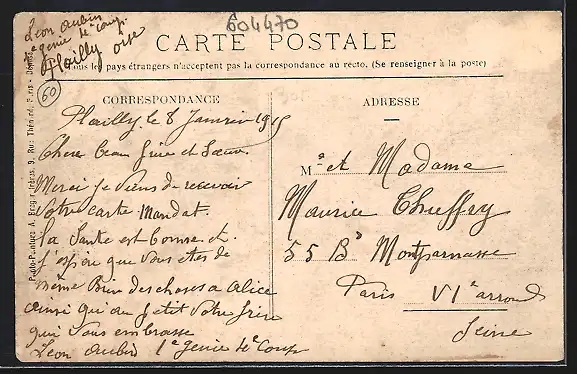 Léon Aubin
1e genie 4e Comp.
Plailly oise
604470
CARTE POSTALE
Tous les pays étrangers n'acceptent pas la correspondance au recto. (Se renseigner à la poste)
60
CORRESPONDANCE
ADRESSE
Plailly, le 8 Janvier 1915
Cher beau frère et Sœur.
Merci je viens de recevoir
votre carte mandat.
la Santé est bonne et
j'espère que vous êtes de
même Bien des choses a Alice
ainsi qu'au petit votre frère
qui vous embrasse
Léon Aubin 1e Genie 4e Comp
Mr et Madame
Maurice Chuffry
55 Bd Montparnasse
Paris VIe arrond
Seine